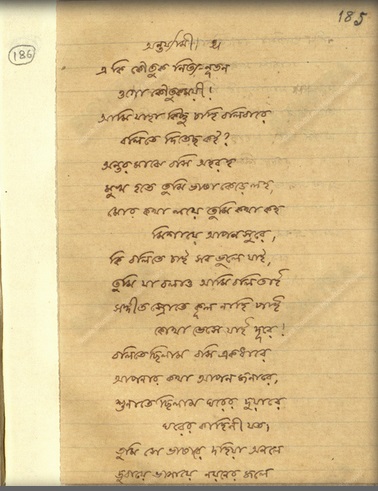 185
186
অন্তর্যামী
এ কি কৌতুক নিত্য-নূতন
ওগো কৌতুকময়ী!
আমি যাহা কিছু চাহি বলিবারে
বলিতে দিতেছ কই?
অন্তর মাঝে বসি অহরহ
মুখ হতে তুমি ভাষা কেড়ে লহ,
মোর কথা লয়ে তুমি কথা কহ
মিশায়ে আপন সুরে,
কি বলিতে চাই সব ভুলে যাই,
তুমি যা বলাও আমি বলি তাই
সঙ্গীত স্রোতে কূল নাহি পাই
কোথা ভেসে যাই দূরে!
বলিতেছিলাম বসি একধারে
আপনার কথা আপন জনারে,
শুনাতেছিলাম ঘরের দুয়ারে
ঘরের কাহিনী যত;
তুমি সে ভাষারে দহিয়া অনলে
ডুবায়ে ভাসায়ে নয়নের জলে